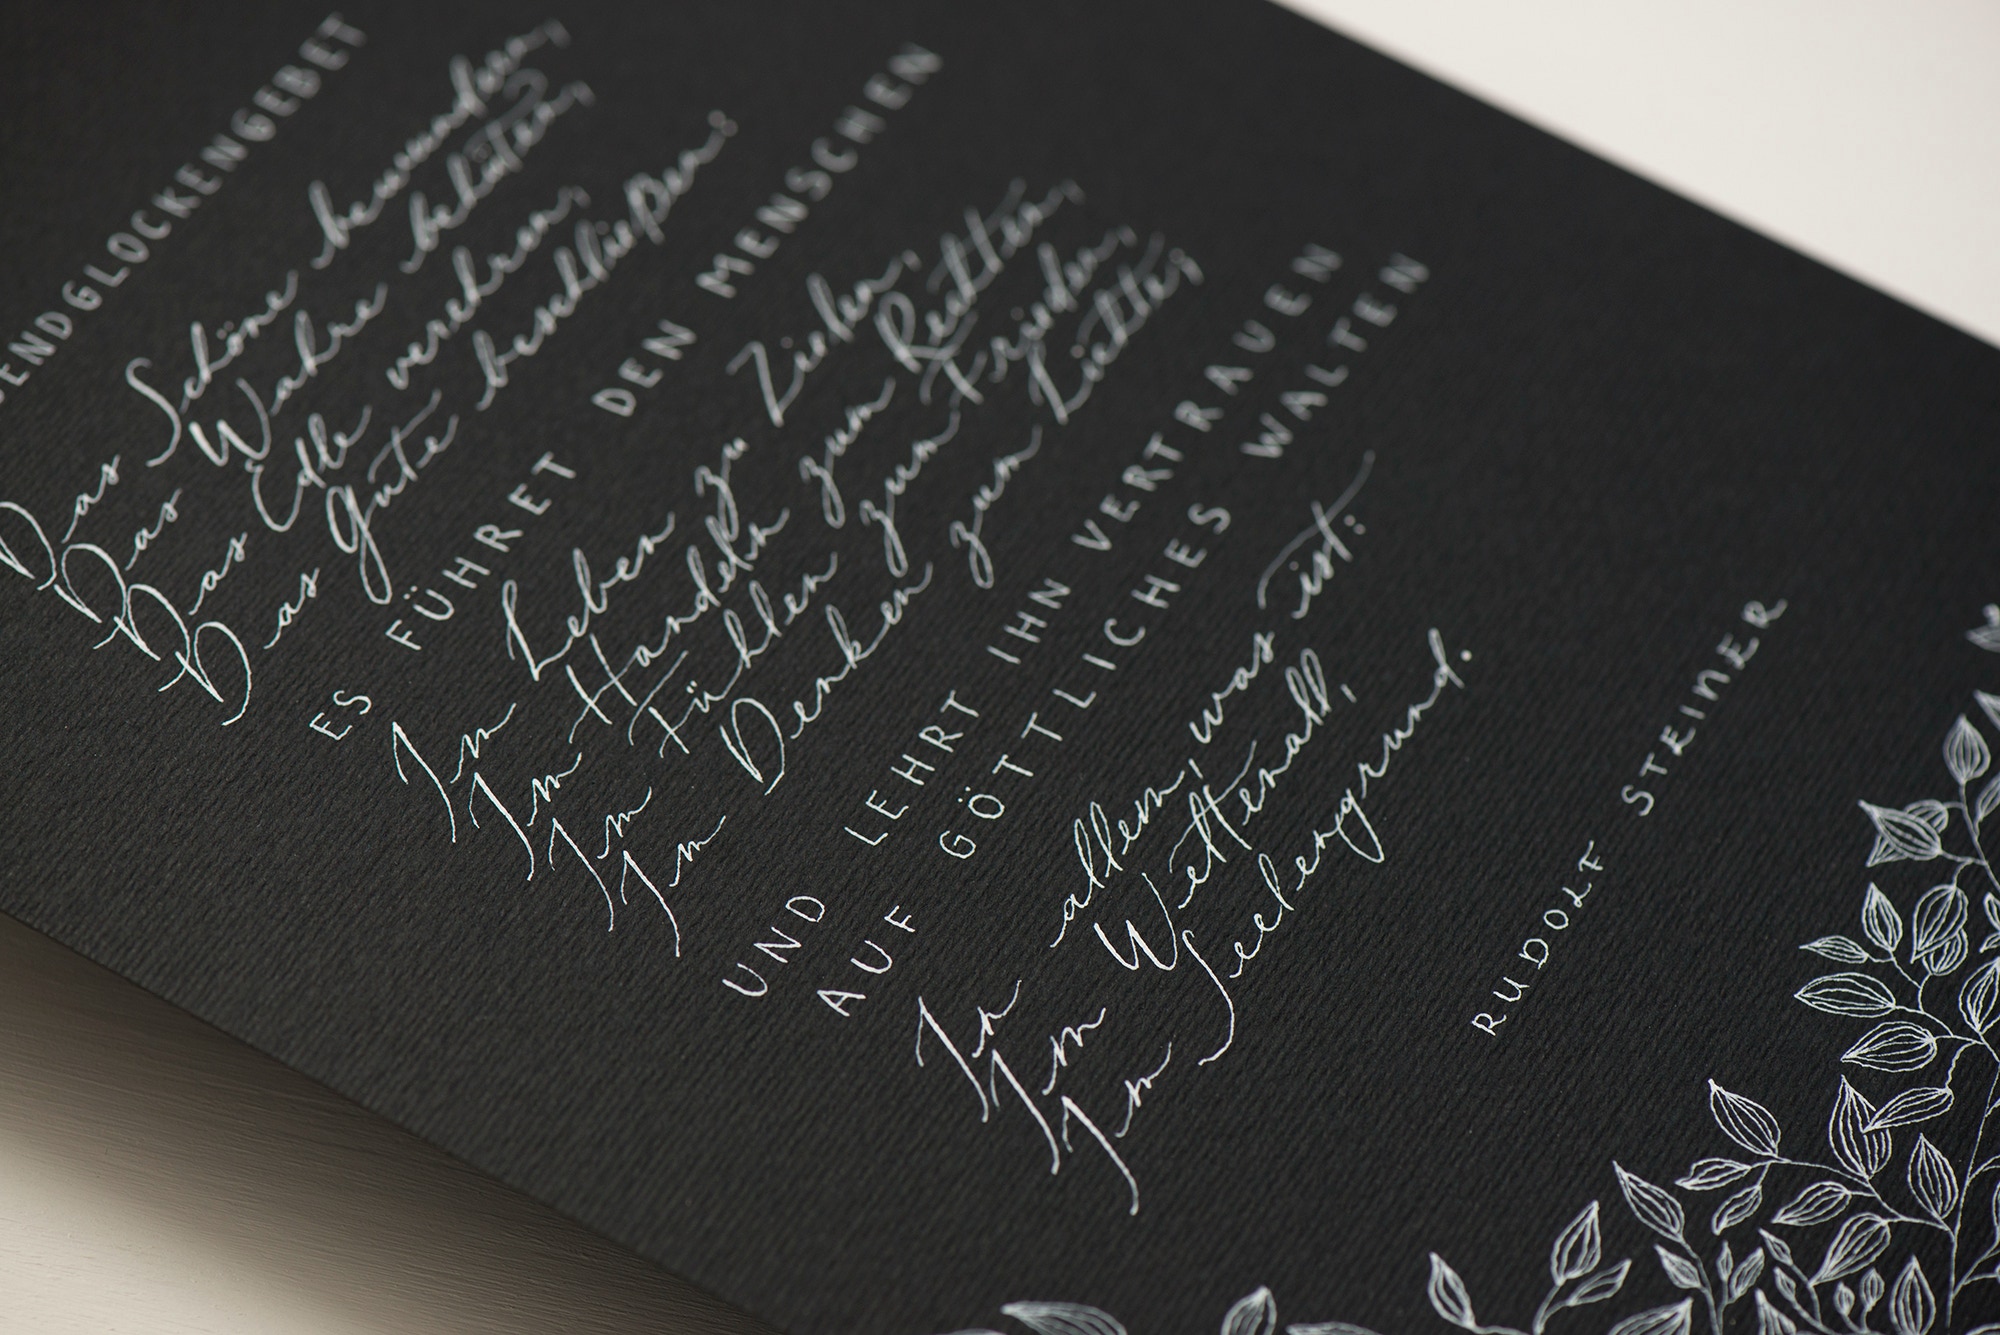 ENDGLOCKENGEBET
Das Schöne bewundern,
Das Wahre behüten,
Das Edle verehren,
Das Gute beschließen:
ES FÜHRET DEN MENSCHEN
Im Leben zu Zielen,
Im Handeln zum Rechten,
Im Fühlen zum Frieden,
Im Denken zum Lichte;
UND LEHRT IHN VERTRAUEN
AUF GÖTTLICHES WALTEN
In allem, was ist:
Im Weltenall,
Im Seelengrund.
RUDOLF STEINER